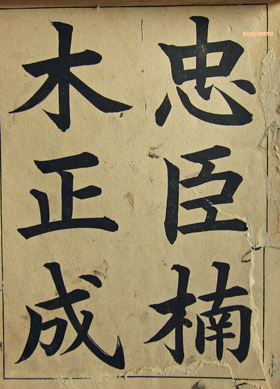 忠臣楠
木正成